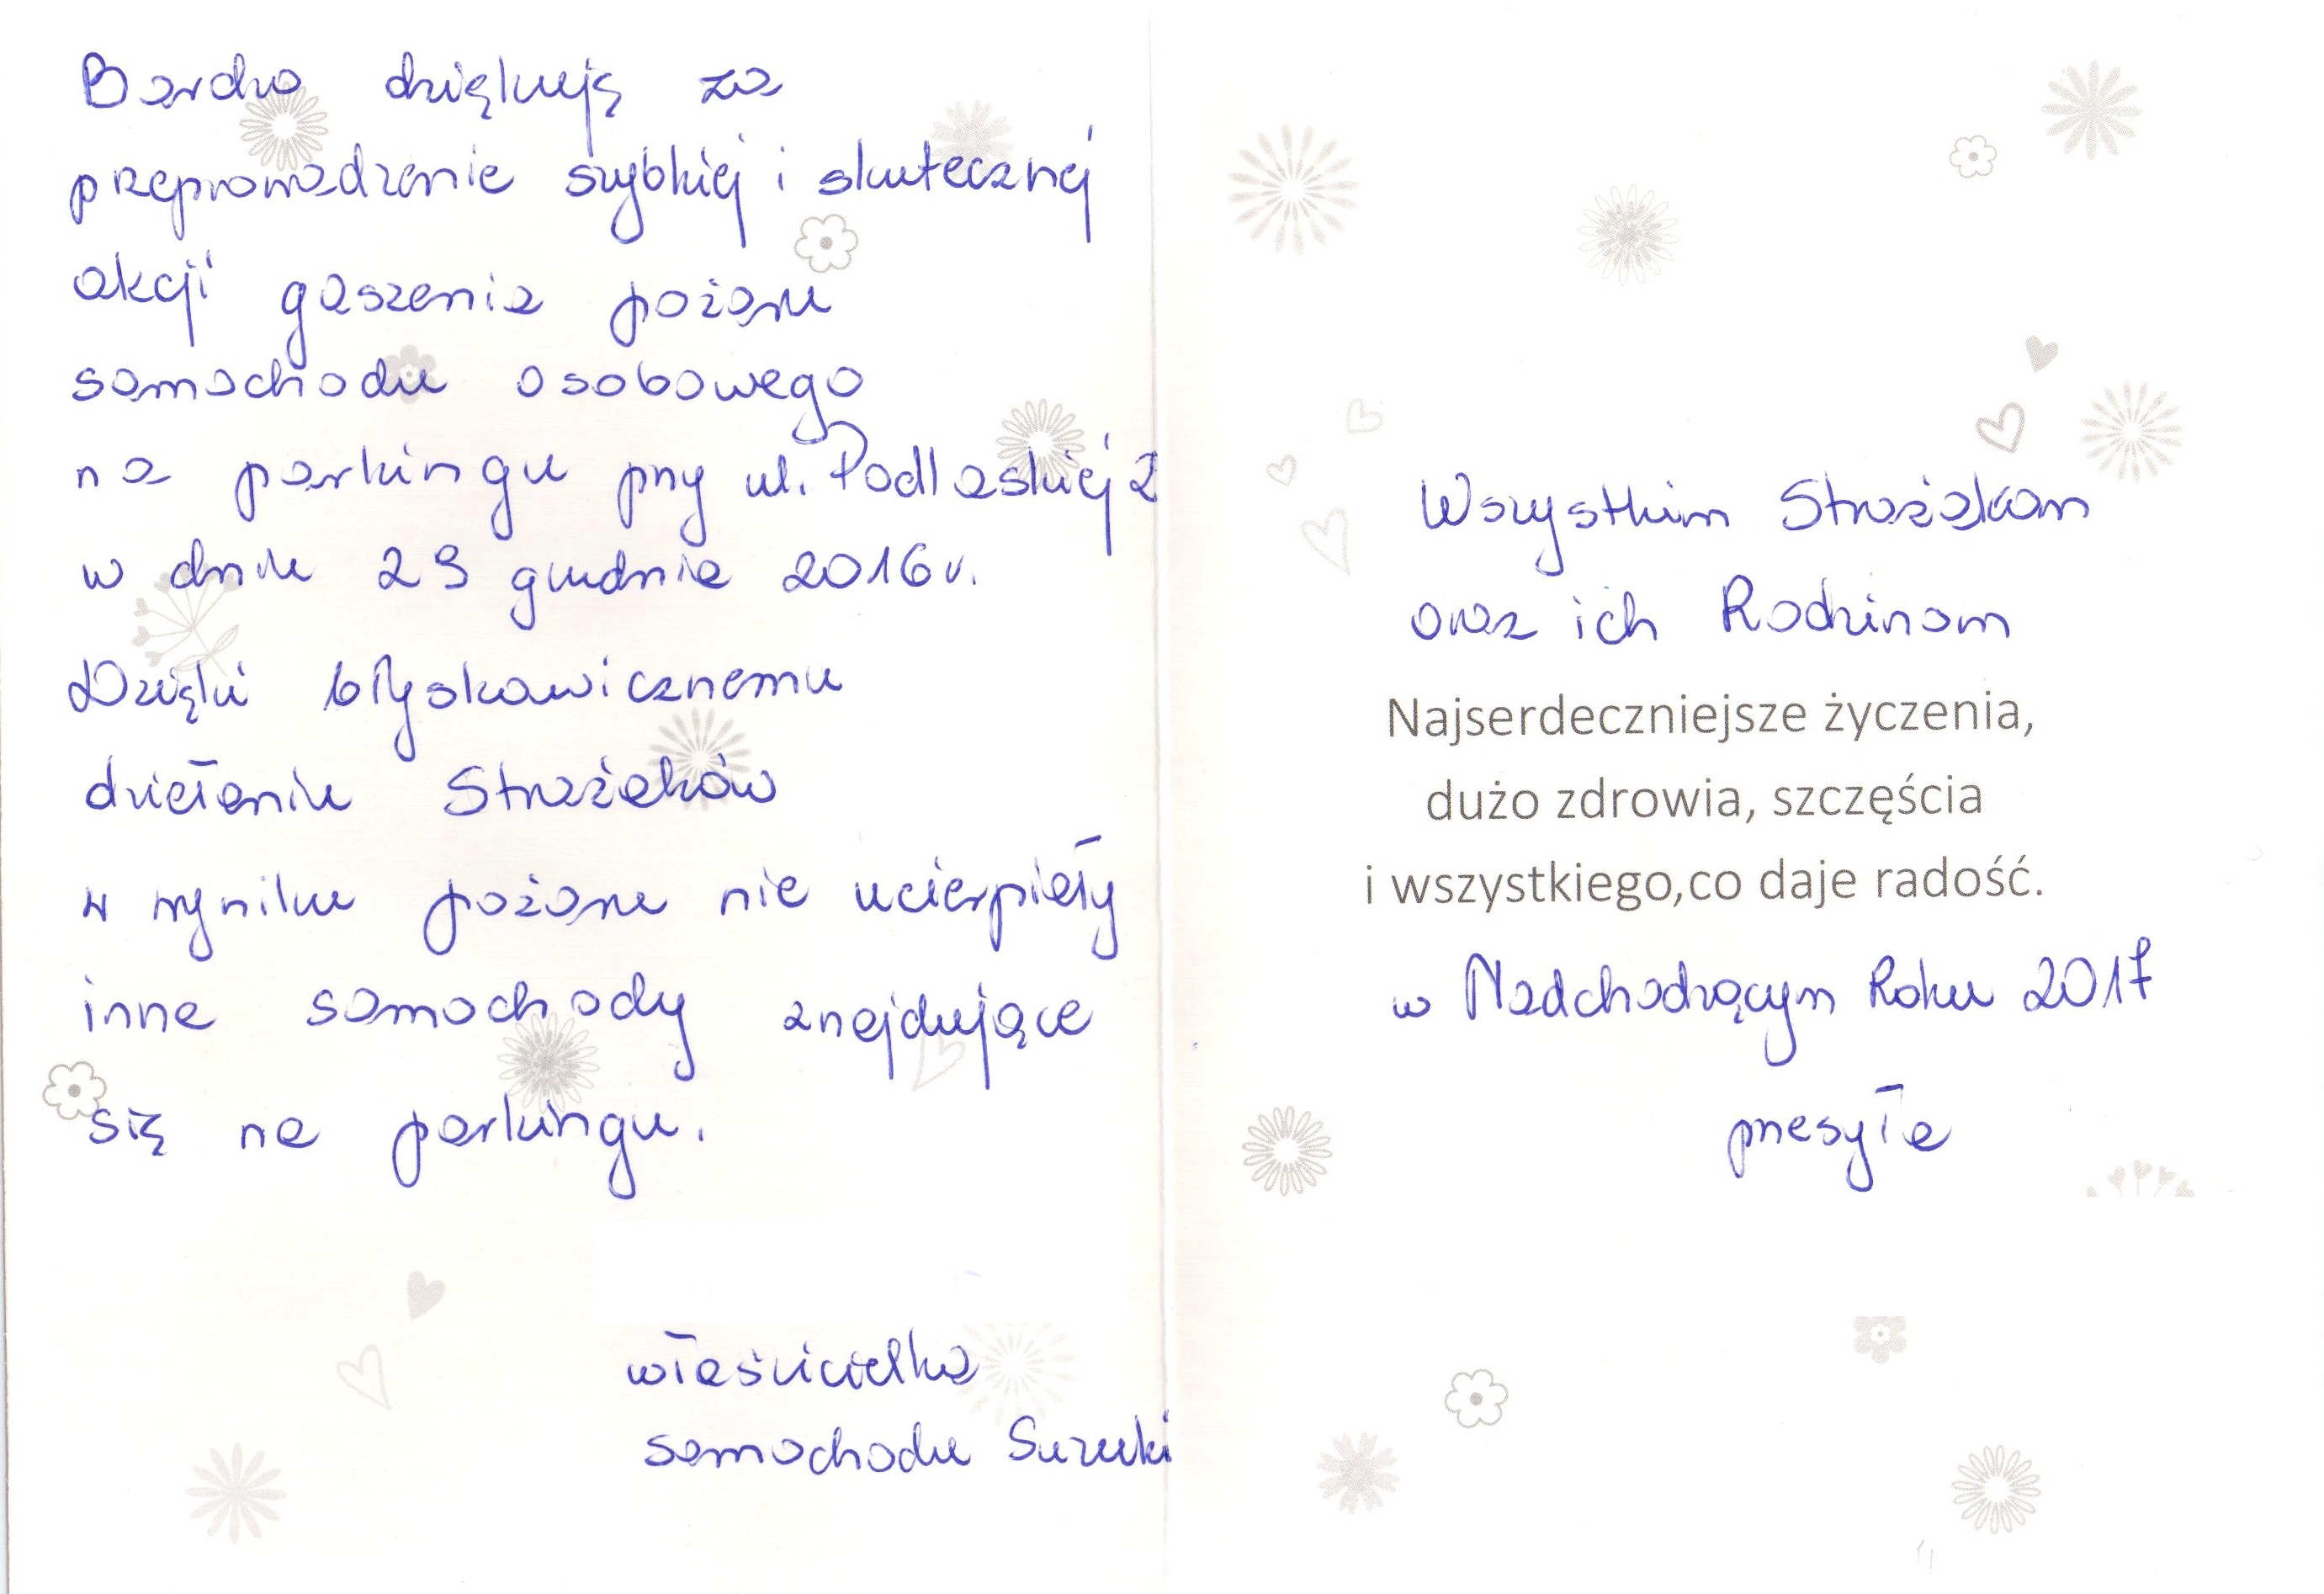 Bardzo dziękuję za
przeprowadzenie szybkiej i skutecznej
akcji gaszenia pożaru
samochodu osobowego
na parkingu przy ul. Podlaskiej 2
w dniu 29 grudnia 2016 r.
Dzięki błyskawicznemu
działaniu Strażaków
w wyniku pożaru nie ucierpiały
inne samochody znajdujące
się na parkingu.
właścicielka
samochodu Suzuki
Wszystkim Strażakom
oraz ich Rodzinom
Najserdeczniejsze życzenia,
dużo zdrowia, szczęścia
i wszystkiego,co daje radość.
w Nadchodzącym Roku 2017
przesyła